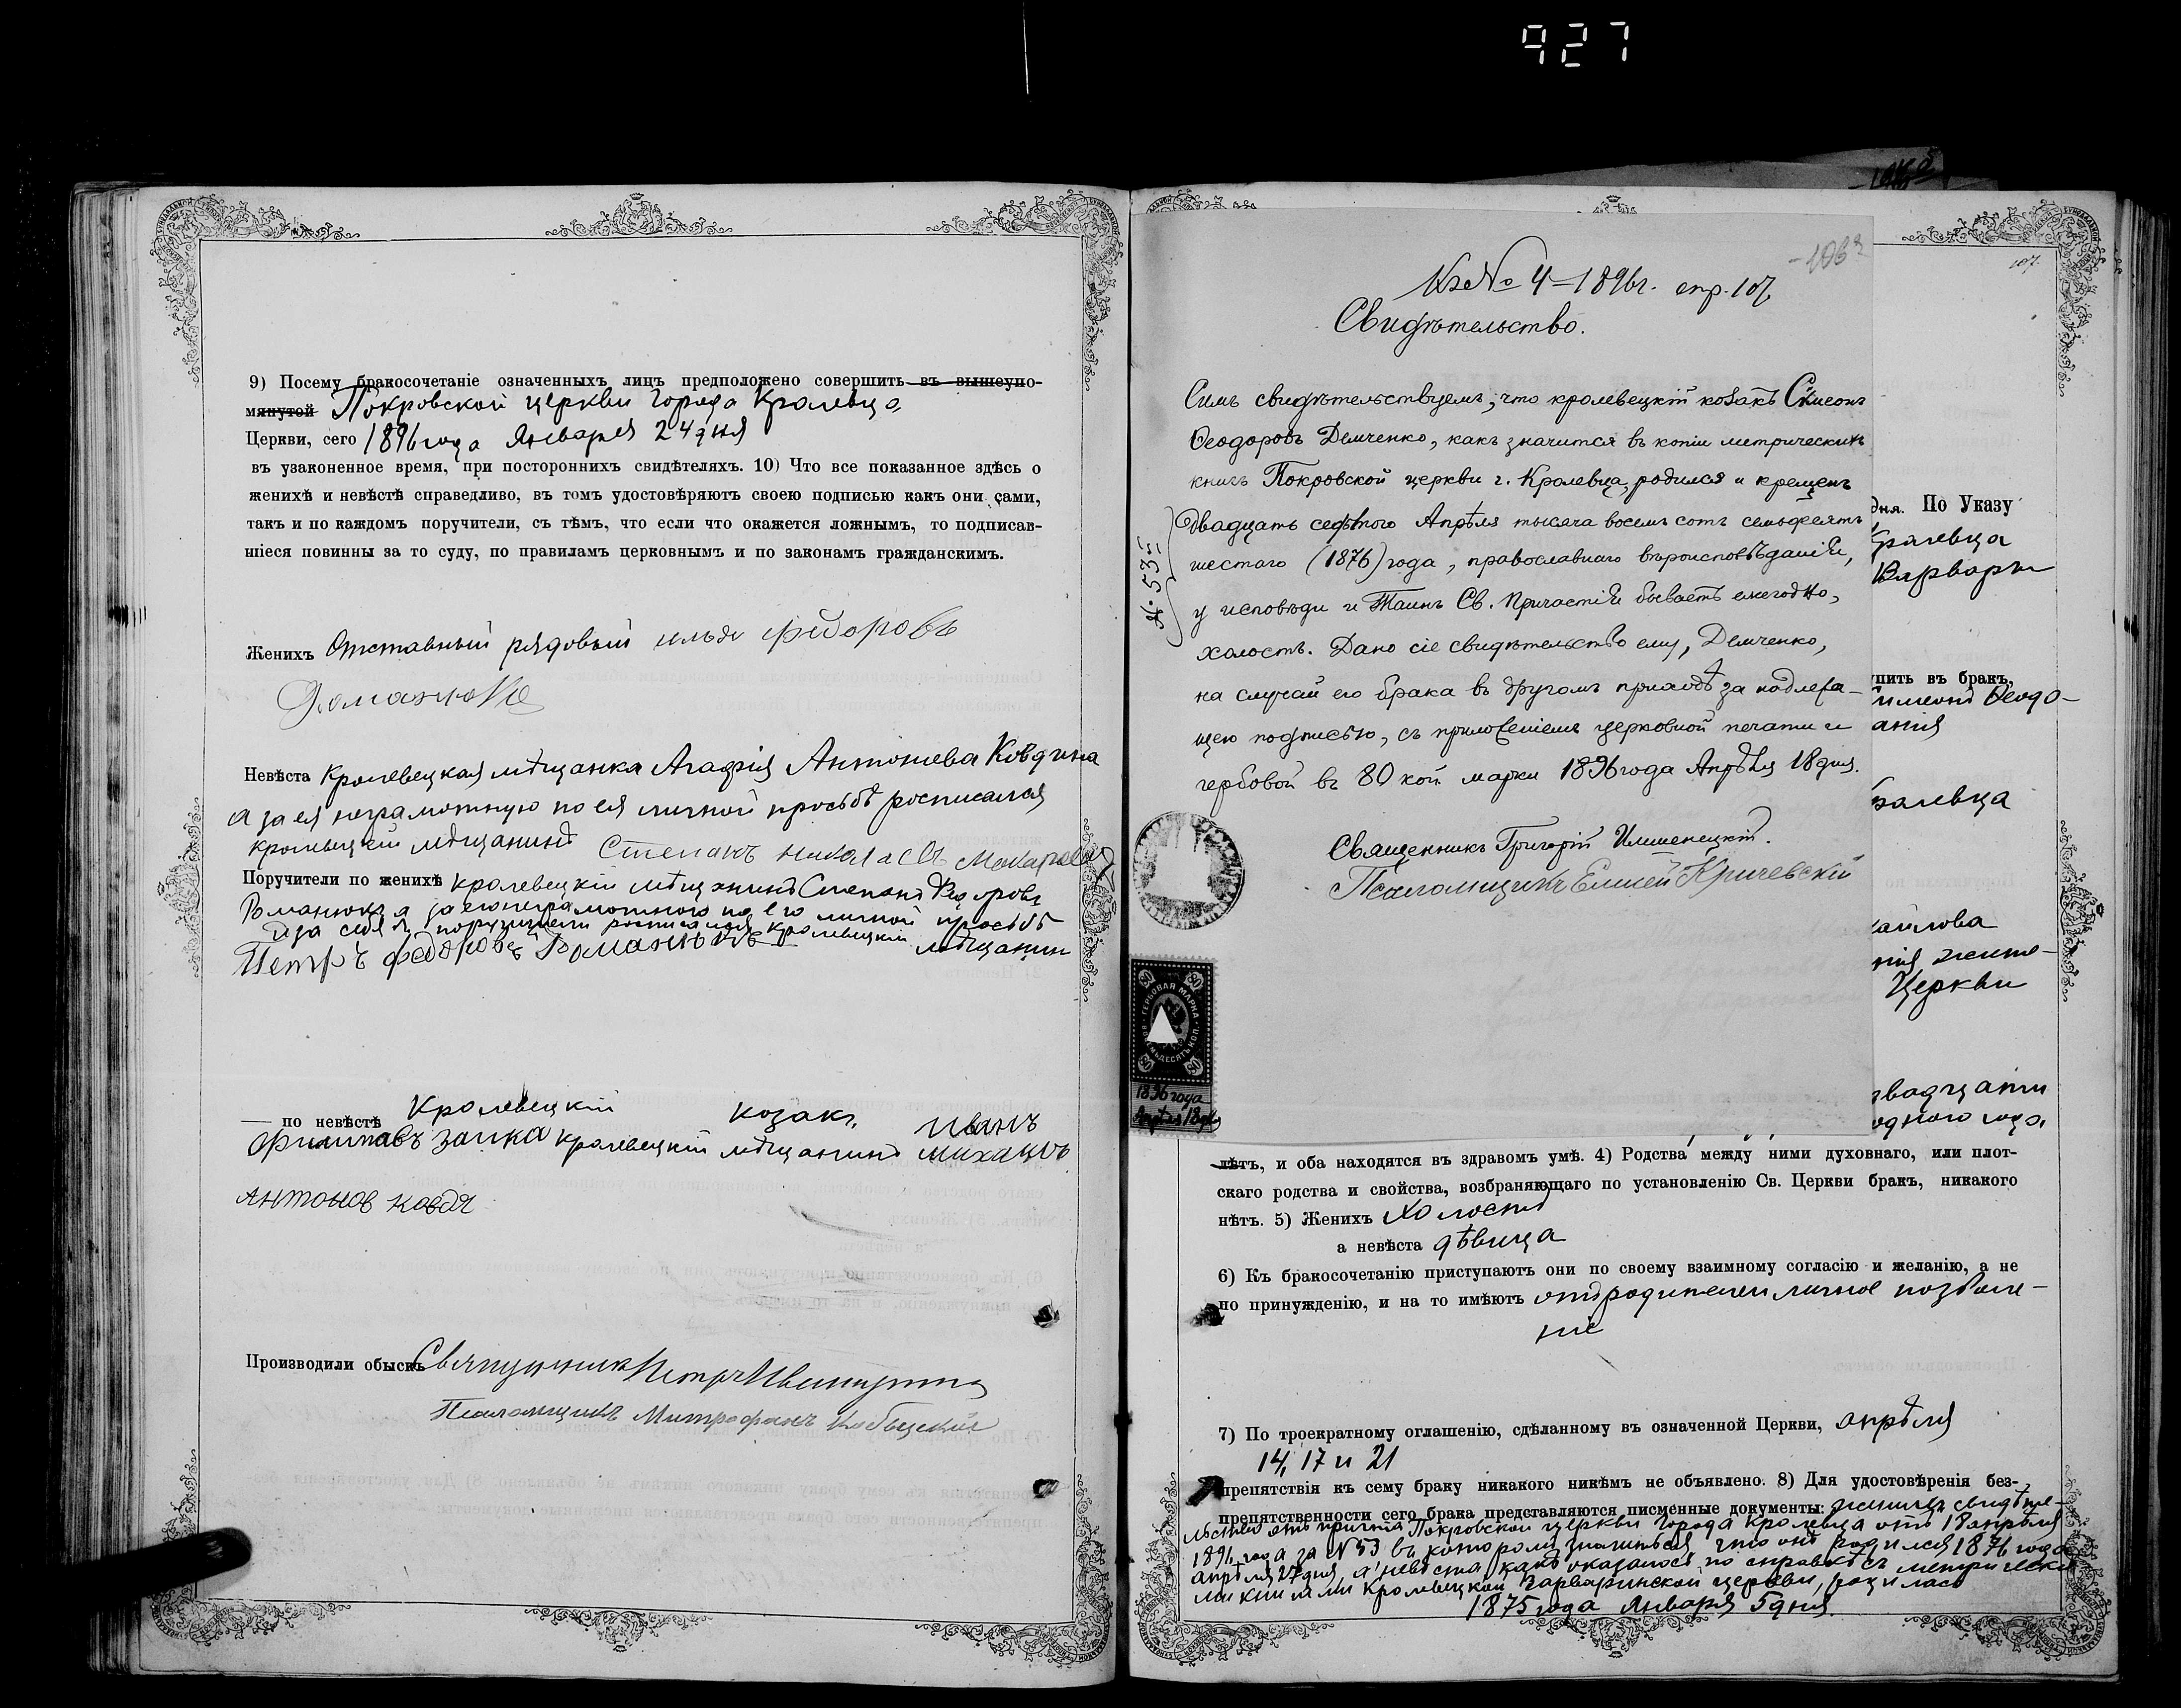 927
9) Посему бракосочетаніе означенныхъ лицъ предположено совершить въ вышеупо-
мянутой Покровской церкви города Кролевца
Церкви, сего 1896 года Января 24 дня
въ узаконенное время, при постороннихъ свидѣтеляхъ. 10) Что все показанное здѣсь о
женихѣ и невѣстѣ справедливо, въ томъ удостовѣряютъ своею подписью какъ они сами,
такъ и по каждомъ поручители, съ тѣмъ, что если что окажется ложнымъ, то подписав-
шіеся повинны за то суду, по правиламъ церковнымъ и по законамъ гражданскимъ.
Женихъ Отставный рядовый илья федоровъ
Романюка
Невѣста Кролевецкая мѣщанка Агафія Антонева Ковдина
а за ея неграмотную по ея личной просьбѣ росписался
кролевецкій мѣщанинъ Степанъ Николаевъ
Поручители по женихѣ кролевецкій мѣщанинъ Степанъ Федоровъ
Романюка а за его неграмотного по его личной просьбѣ
и за себя поручители росписался кролевецкій мѣщанин
Петръ федоровъ Романюкъ
— по невѣстѣ Кролевецкій козакъ Иванъ
Филиповъ заика кролевецкій мѣщанинъ михаилъ
антонов ковдя
Производили обыскъ Священникъ Петръ
Псаломщикъ Митрофанъ
106
Къ № 4 – 1896 г. стр. 107
Свидѣтельство.
Симъ свидѣтельствуемъ, что кролевецкій козакъ Симеонъ
Ѳеодоровъ Демченко, какъ значится въ копіи метрическихъ
книгъ Покровской церкви г. Кролевца, родился и крещенъ
двадцать седьмого Апрѣля тысяча восемь сотъ семьдесятъ
шестаго (1876) года, православнаго вѣроисповѣданія,
у исповѣди и Таинъ Св. Причастія бываетъ ежегодно,
холостъ. Дано сіе свидѣтельство ему, Демченко,
на случай его брака въ другомъ приходѣ за надлежа-
щею подписью, съ приложеніемъ церковной печати и
гербовой въ 80 коп марки 1896 года Апрѣля 18 дня.
№ 53
Священникъ Григорій
Псаломщикъ Елисей Кричевскій
80 80
ГЕРБОВАЯ МАРКА
ВОСЕМЬДЕСЯТЪ КОП.
80 80
1896 года
Апрѣля 18 дня
107.
дня. По Указу
Кролевца
Варвары
упить въ бракъ,
Симеонъ Ѳеодо-
анія
Кролевца
хаилова
нія жите-
Церкви
двадцати
одного года,
лѣтъ, и оба находятся въ здравомъ умѣ. 4) Родства между ними духовнаго, или плот-
скаго родства и свойства, возбраняющаго по установленію Св. Церкви бракъ, никакого
нѣтъ. 5) Женихъ Холостъ
а невѣста дѣвица
6) Къ бракосочетанію приступаютъ они по своему взаимному согласію и желанію, а не
по принужденію, и на то имѣютъ отъ родителей личное позволе-
ніе
7) По троекратному оглашенію, сдѣланному въ означенной Церкви, апрѣля
14, 17 и 21
препятствія къ сему браку никакого никѣмъ не объявлено. 8) Для удостовѣренія без-
препятственности сего брака представляются писменные документы: жениха свидѣте-
льство отъ причта Покровской церкви города Кролевца отъ 18 апрѣля
1896 года за №53 въ которомъ значиться, что онъ родился 1876 года
апрѣля 27 дня, а невѣста, какъ оказалось по справкѣ съ метрически-
ми книгами Кролевецкой Варваринской церкви, родилась
1875 года Января 5 дня.